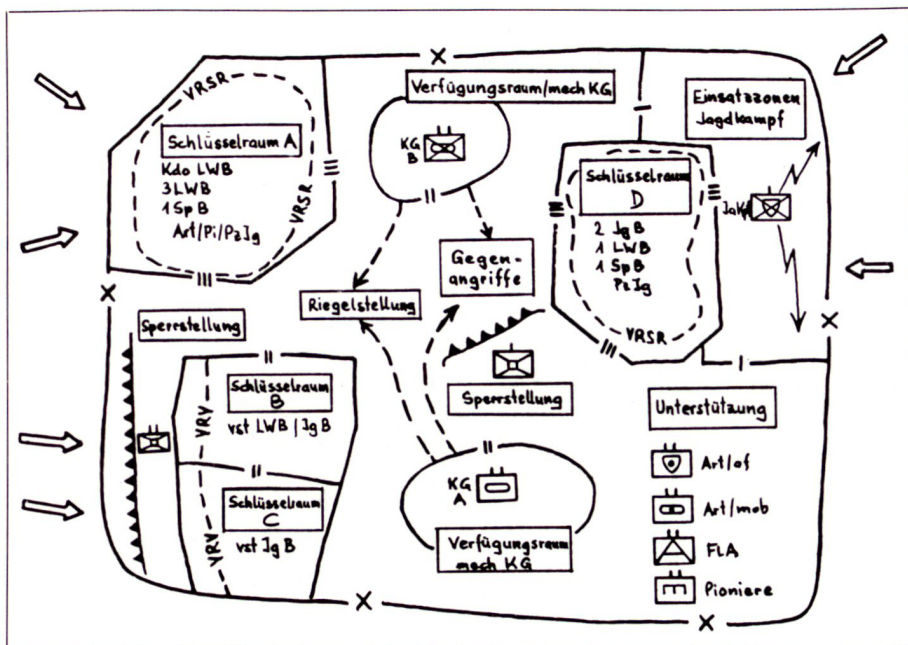 VRSR
Schlüsselraum A
Kdo LWB
3 LWB
1 SpB
Art/Pi/PzJg
VRSR
Verfügungsraum/mech KG
KG
B
Einsatzzonen
Jagdkampf
JaKpf
Schlüsselraum
D
2 JgB
1 LWB
1 SpB
PzJg
VRSR
Gegen-
angriffe
Riegelstellung
Sperrstellung
Sperrstellung
Schlüsselraum
B
vst LWB/JgB
VRV
Schlüsselraum
C
vst JgB
VRV
KG
A
Verfügungsraum
mech KG
Unterstützung
Art/of
Art/mob
FLA
Pioniere